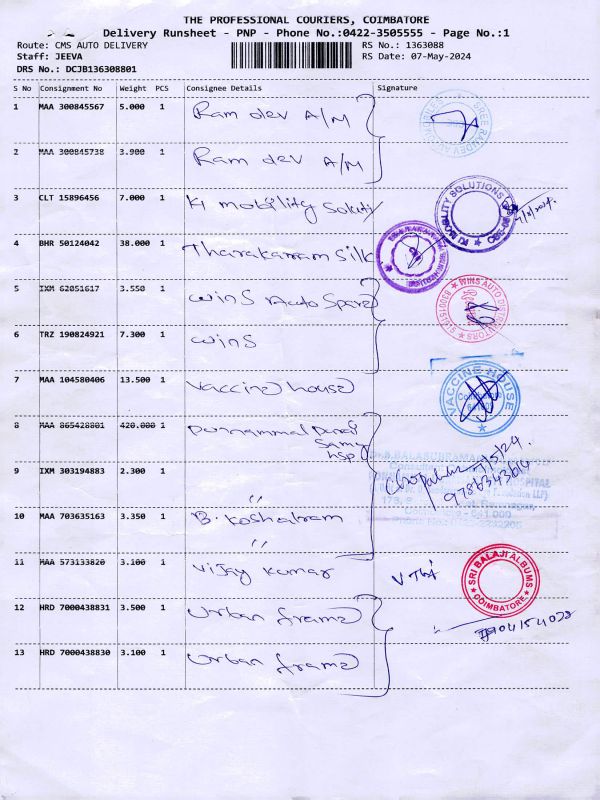 THE PROFESSIONAL COURIERS, COIMBATORE
Delivery Runsheet - PNP - Phone No.:0422-3505555 - Page No.:1
Route: CMS AUTO DELIVERY RS No.: 1363088
Staff: JEEVA RS Date: 07-May-2024
DRS No.: DCJB136308801
S No Consignment No Weight PCS Consignee Details Signature
1 MAA 300845567 5.000 1 Ram dev A/M
2 MAA 300845738 3.900 1 Ram dev A/M
3 CLT 15896456 7.000 1 Ki mobility
KI MOBILITY SOLUTIONS
4 BHR 50124042 38.000 1 Tharakaram Silk
5 IXM 62051617 3.550 1 Wins Auto Spare
WINS AUTO DISTRIBUTORS
6 TRZ 190824921 7.300 1 Wins
7 MAA 104580406 13.500 1 Vaccine house
VACCINE HOUSE
8 MAA 865428801 420.000 1
hsp
9 IXM 303194883 2.300 1 "
9786343614
10 MAA 703635163 3.350 1 B. Koshalram
"
11 MAA 573133820 3.100 1 Vijay Kumar
SRI BALAJI ALBUMS
COIMBATORE
12 HRD 7000438831 3.500 1 Urban frame
13 HRD 7000438830 3.100 1 Urban frame